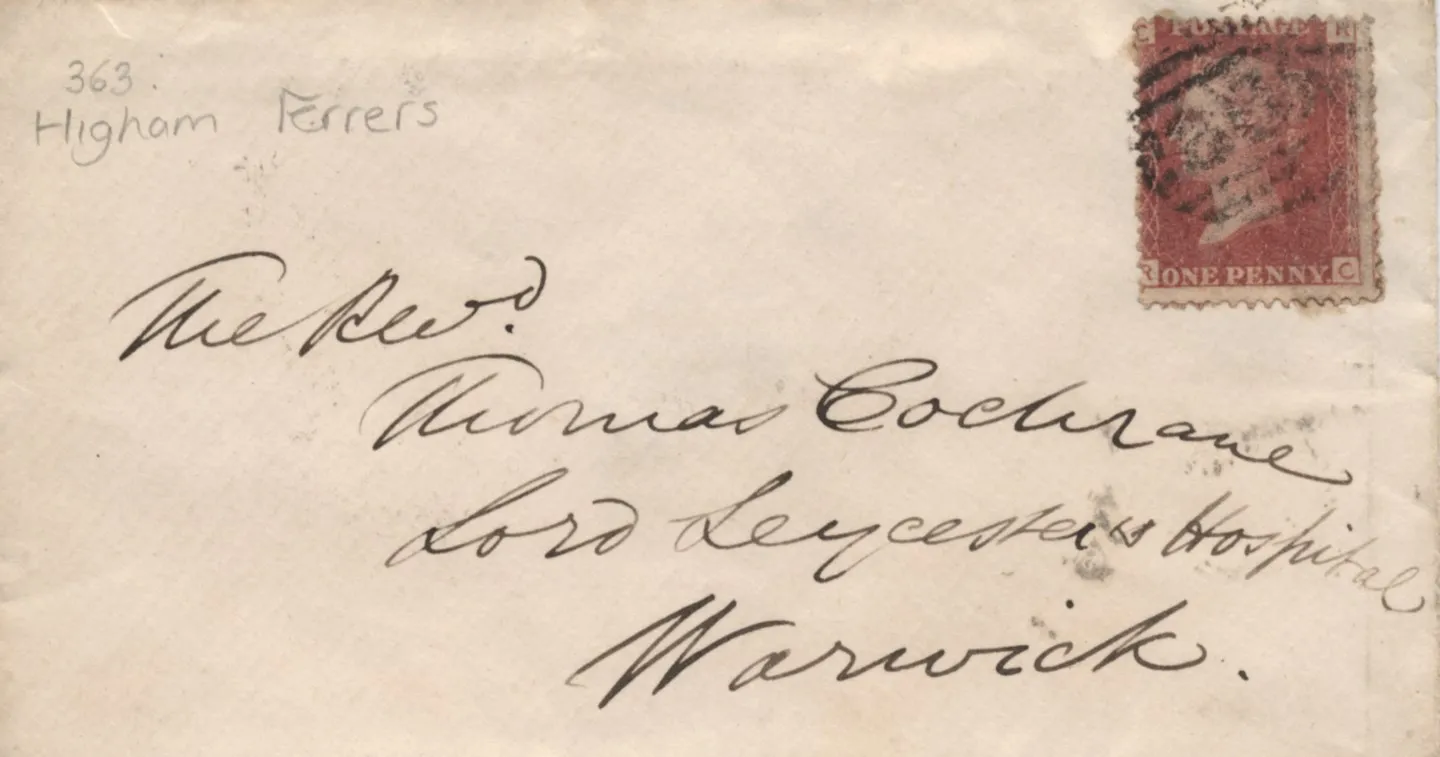 363.
Higham Ferrers
C POSTAGE K
K ONE PENNY. C
The Revd.
Thomas Cochrane
Lord Leycesters Hospital
Warwick.